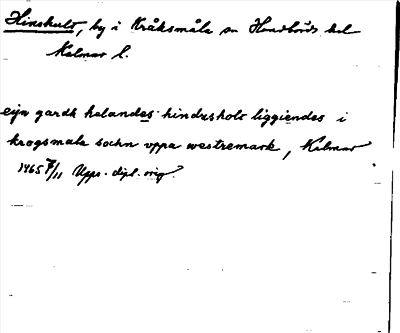 Hinshult, by i Kråksmåla sn Handbörds hd
Kalmar l.
eijn gardh hetandes hindsholt liggiendes i
krogsmala sochn vppa westremark, Kalmar
1465 7/11 Upps. dipl. orig.